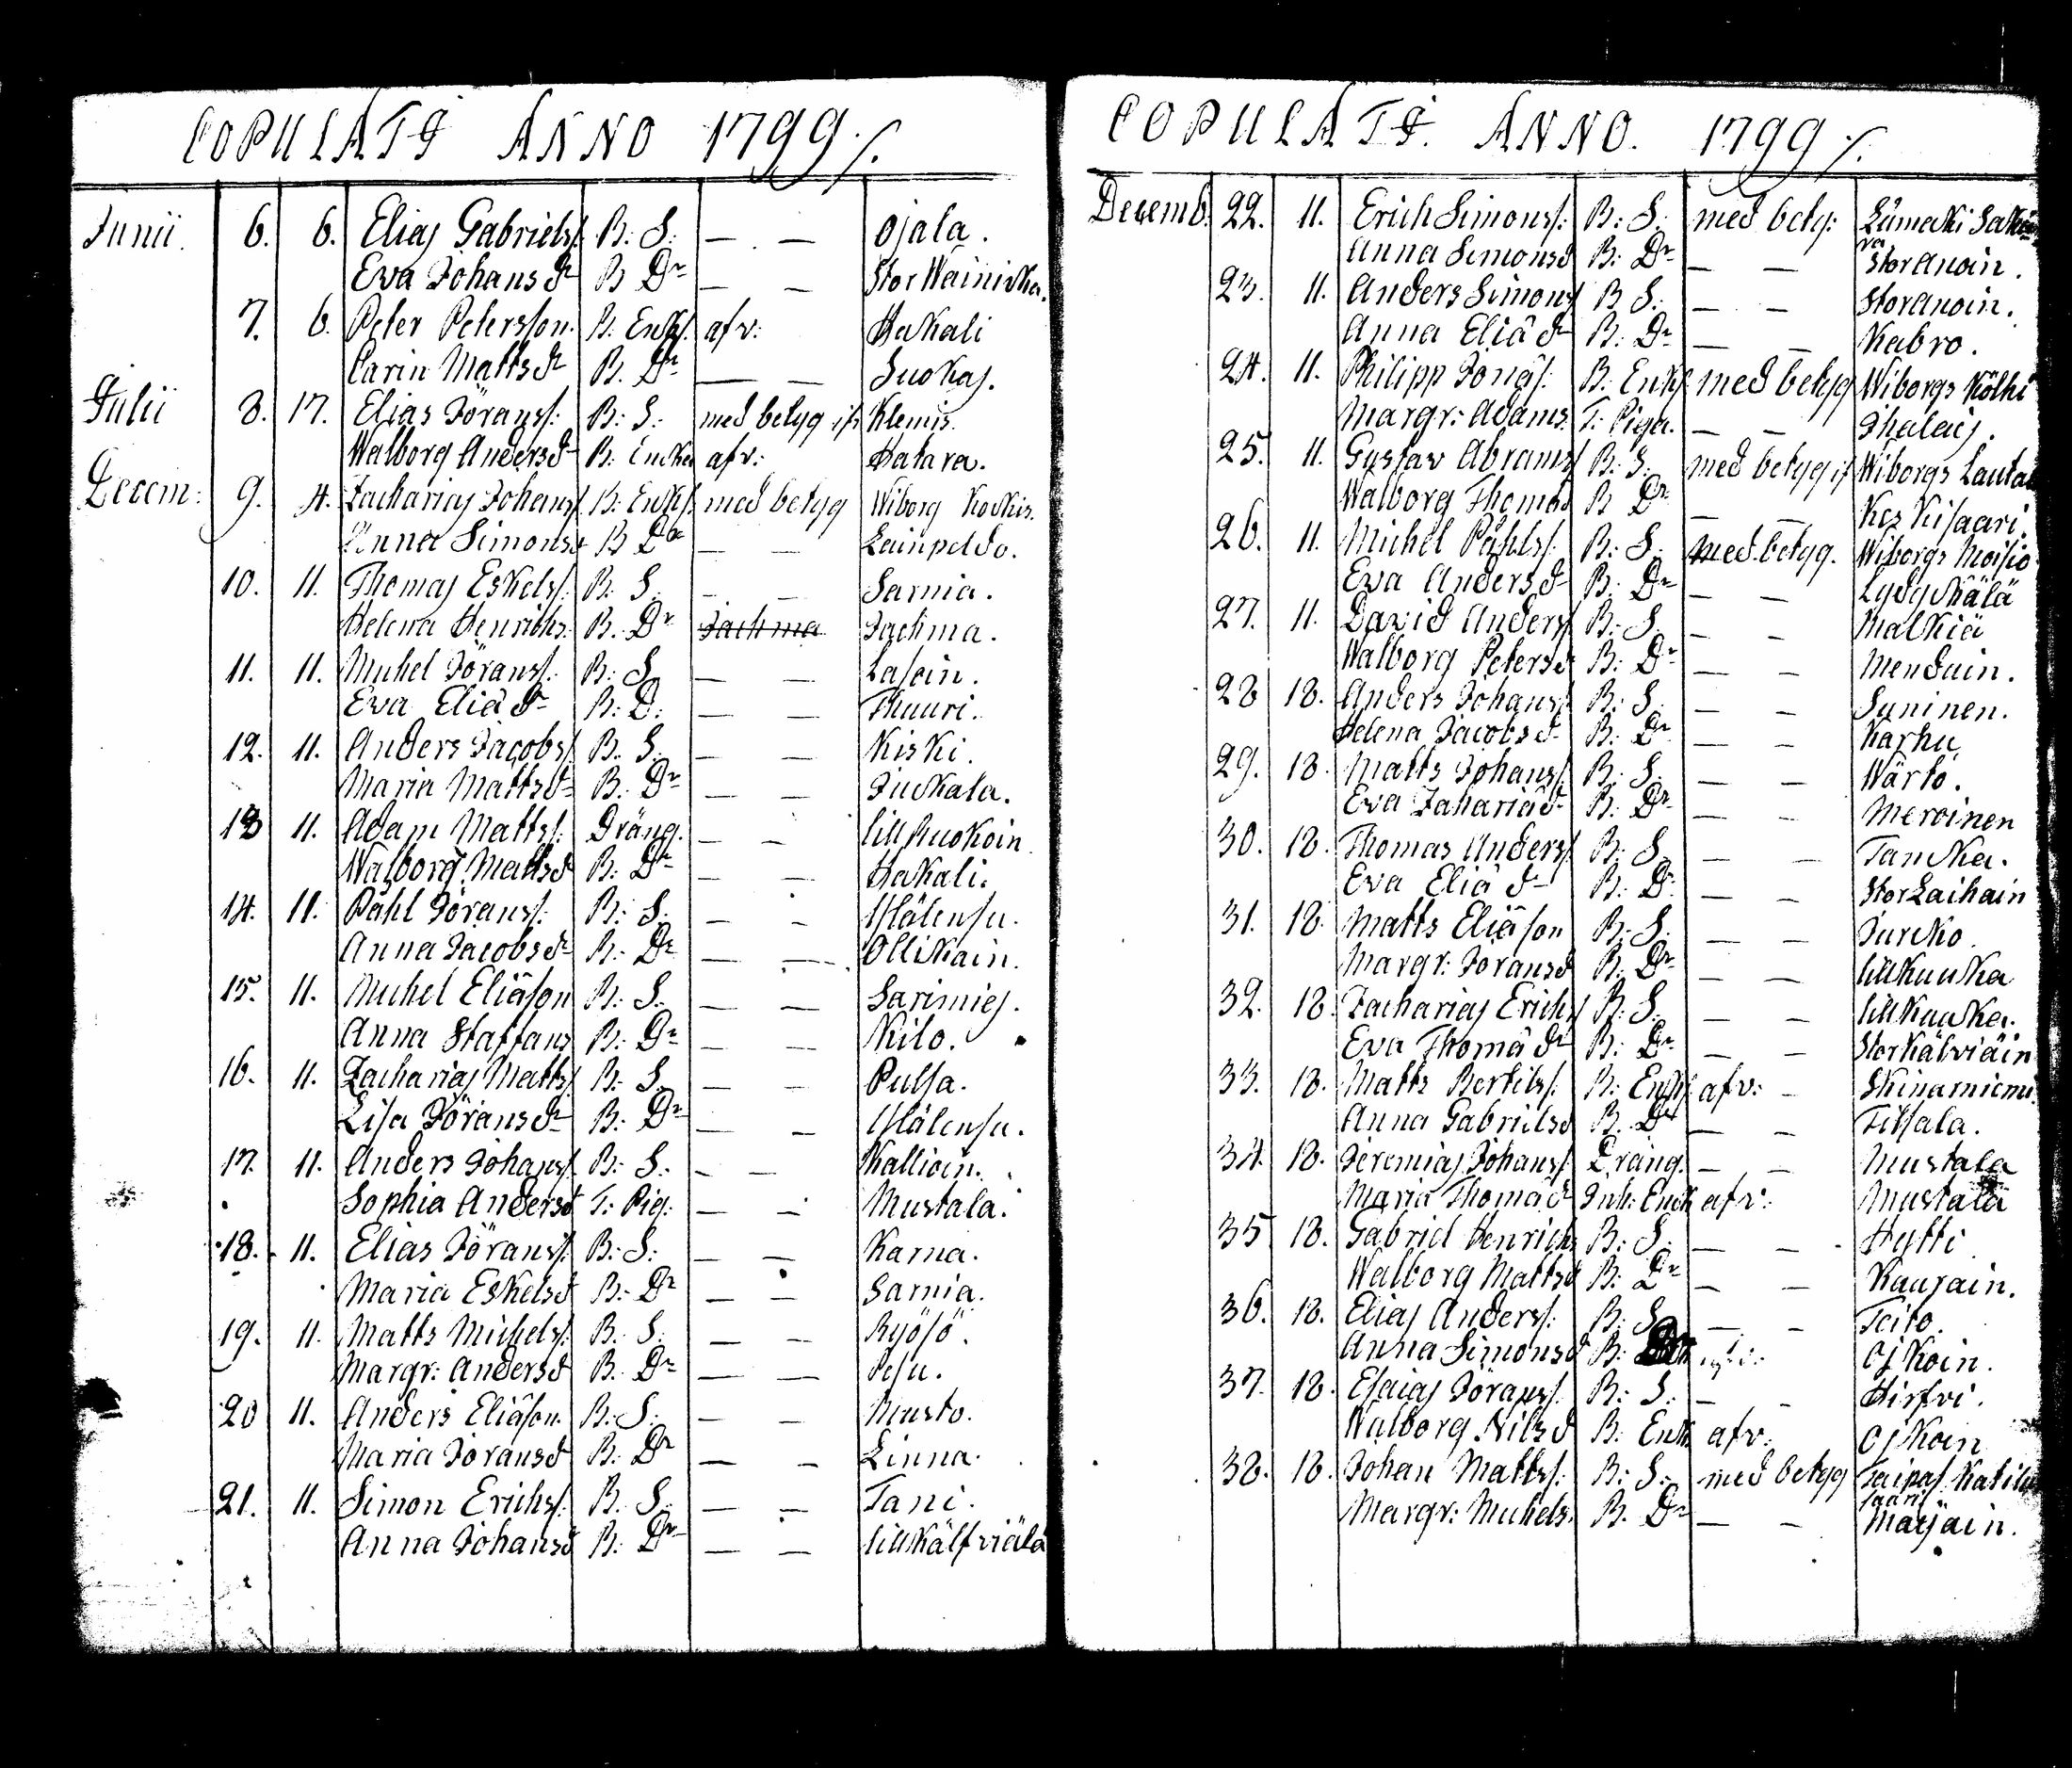 COPULATI ANNO 1799 /.
Junii. 6. 6. Elias Gabriels/: B: S: — — Ojala.
Eva Johansdr B Dr — — StorWainicka.
7. 6. Peter Petersson. B. Enkl. afv: Hakali
Carin Mattsdr B. Dr — — Suokas.
Julii 8. 17. Elias Jörans/: B: S: med betyg Klemis.
Walborg Andersd B: Encka afv: Hatara.
Decem: 9. 4. Zacharias Johans/ B: Enkl. med betyg Wiborg Kockis.
Anna Simonsd B Dr — — Lainpeldo.
10. 11. Thomas Eskels/: B. S. — — Sarnia.
Helena Henrichs: B. Dr Jachma Jachma.
11. 11. Michel Jörans/: B: S. — — Lasoin.
Eva Eliädr B: D: — — Thuuri.
12. 11. Anders Jacobs/: B. S. — — Kiski.
Maria Mattsdr B. Dr — — Juckala.
13 11. Adam Matts/: Dräng. — — lill Ruokoin
Walborg Mattsd B: Dr — — Hakali.
14. 11. Påhl Jörans/: B: S. — —
Anna Jacobsdr B. Dr — — Ollikain.
15. 11. Michel Eliäson B: S: — — Sarimies.
Anna Staffans B: Dr — — Kilo.
16. 11. Zacharias Matts/ B: S. — — Pulsa.
Lisa Jöransdr B: Dr — —
17. 11. Anders Johans/ B: S: — — Kallioin.
Sophia Andersd T: Pig: — — Mustala.
18. 11. Elias Jörans/: B: S: — — Karna.
Maria Eskelsd B: Dr — — Sarnia.
19. 11. Matts Michels/: B. S: — — Ryösö.
Margr: Andersd B. Dr — — Pesu.
20 11. Anders Eliäson. B: S: — — Musto.
Maria Joransd B: Dr — — Linna.
21. 11. Simon Erichs/: B. S: — — Tani.
Anna Johansd B: Dr — — lillKälfviälä
COPULATI. ANNO. 1799 /.
Decemb. 22. 11. Erich Simons/: B: S: med bety: Lämäcki
Anna Simonsd B: Dr — — StorAnoin.
23. 11. Anders Simons/ B S: — — StorAnoin.
Anna Eliädr B: Dr — — Kabro.
24. 11. Philipp Jonäs/: B: Enkl med betyg Wiborgs Kölhi
Margr: Adams. T: Piga. — — Thalais.
25. 11. Gustav Abrams/ B: S: med betyg Wiborgs
Walborg Thomäd B Dr — — Keskisaari.
26. 11. Michel Påhls/: B: S: med betyg. Wiborgs Moisio
Eva Andersdr B: Dr — — Lydyckälä
27. 11. David Anders/ B: S. — — Malkiä
Walborg Petersd B: Dr — — Menduin.
28 18. Anders Johans/: B: S: — — Suninen.
Helena Jacobsdr B: Dr — — Karhu
29. 18. Matts Johans/: B: S: — — Wärtö.
Eva Zahariädr B: Dr — — Meroinen
30. 18. Thomas Anders/: B: S. — — Tancka.
Eva Eliädr B: Dr — — StorLaihain
31. 18. Matts Eliäson B: S: — — Jurcko.
Margr: Joransd B: Dr — — lillkuuka
32. 18. Zacharias Erichs/ B: S: — — lillKuuka.
Eva Thomädr B: Dr — — StorKälviäin
33. 18. Matts Bertils/: B: Enkl. afv: — Skinarniemi.
Anna Gabrielsd B. Dr — — Tilsala.
34. 18. Jeremias Johans/ Dräng. — — Mustala
Maria Thomäd Inh: Enck afv: Mustala
35 18. Gabriel Henrichs B: S: — — Hytti
Walborg Mattsd B: Dr — — Kaurain.
36. 18. Elias Anders/: B: S. — — Teito.
Anna Simonsd B: Ojkoin.
37. 18. Esaias Jörans/: B: S. — — Hirfvi.
Walborg Nilsd B: Enk. afv: Ojkoin
38. 18. Johan Matts/: B: S: med betyg Taipas.
saari
Margr: Michels. B. Dr — — Marjain.